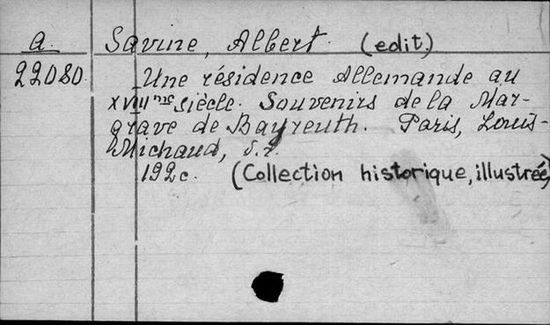 a. Savine, Albert. (edit.)
22080. Une résidence Allemande au
XVIIIme siècle. Souvenirs de la Mar-
grave de Bayreuth. Paris, Louis-
Michaud, s.d.
192 c. (Collection historique, illustrée)